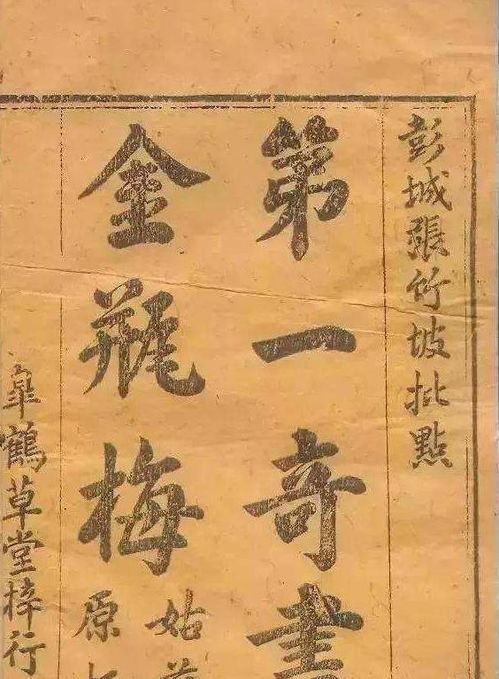 彭城張竹坡批點
第一奇書
金瓶梅
姑
原
臯鶴草堂梓行